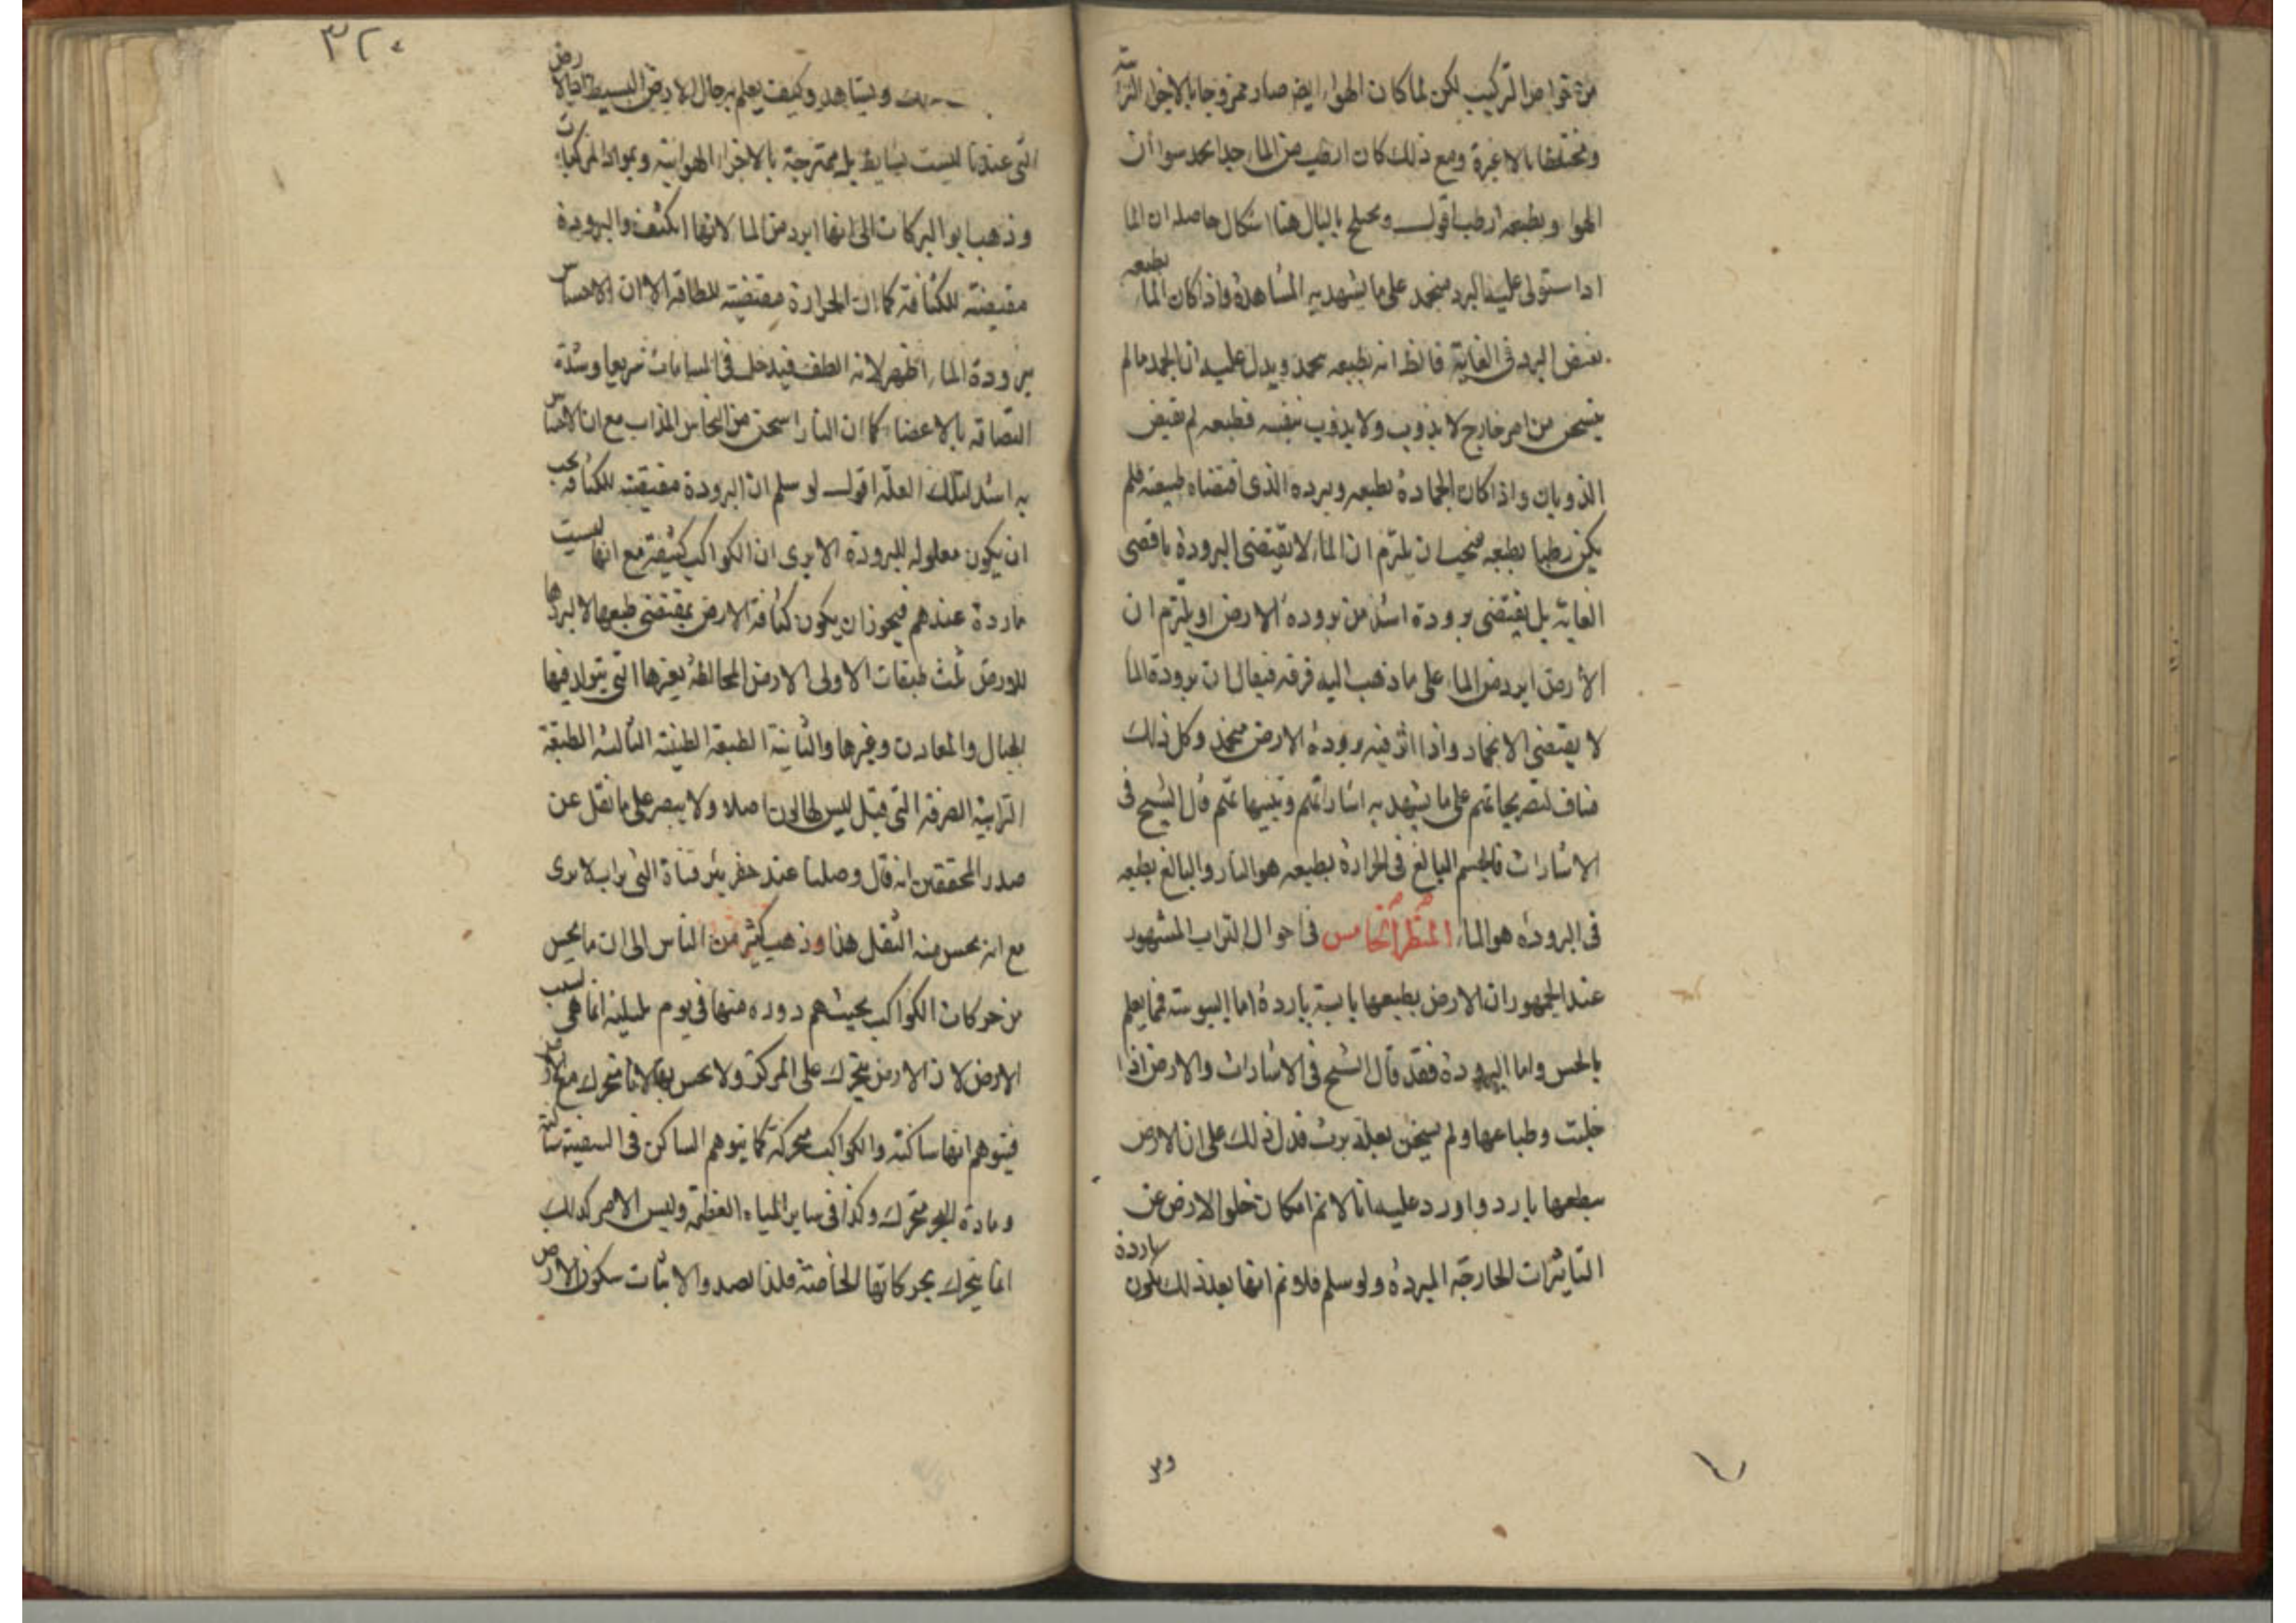 من خواص التركيب لكن لما كان الهواء ايضا صار ممزوجا بالاجزاء الترابية
ومختلطا بالاغبرة ومع ذلك كان ارطب من الماء جدا سواء ان
الهواء وبطبعه ارطب اقول ويختلج بالبال هنا اشكال حاصله ان الماء
اذا ستولى عليه البرد منجمد على ما يشهد به المشاهدة واذا كان الماء بطبعه
البرد فى الغاية فالظ انه بطبعه ويدل عليه ان الجمد ما لم
يتسخن من امر خارج لا يذوب ولا يذوب بنفسه فطبعه لم يقتض
الذوبان واذا كان انجماده بطبعه وببرده الذى اقتضاه طبيعته فلم
يكن رطبا بطبعه فيجب ان يلتزم ان الماء لا يقتضى البرودة باقصى
الغاية بل يقتضى برودة اشد من برودة الارض او يلتزم ان
الارض ابرد من الماء على ما ذهب اليه فرقة فيقال ان برودة الماء
لا يقتضى الانجماد واذا اثر فيه برودة الارض منجمد وكل ذلك
مناف لتصريحاتهم على ما يشهد به اشاراتهم وتنبيهاتهم قال الشيخ فى
الاشارات فالجسم البالغ فى الحرارة بطبعه هو النار والبالغ بطبعه
فى البرودة هو الماء المنظر الخامس فى احوال التراب المشهور
عند الجمهور ان الارض بطبعها يابسة باردة اما اليبوسة فمما يعلم
بالحس واما البرودة فقد قال الشيخ فى الاشارات والارض اذا
خليت وطباعها ولم يسخن بعلة بردت فدل ذلك على ان الارض
بطبعها بارد واورد عليه انا لانم امكان خلو الارض عن
التاثيرات الخارجة المبردة ولو سلم فلانم انها بعد ذلك يكون باردة
و
٣٢٠
ويشاهد وكيف يعلم به حال الارض البسيط اذ الارض
التى عندنا ليست بسايط بل ممتزجة بالاجزاء الهوائية وبمواد المركبات
وذهب ابو البركات الى انها ابرد من الماء لانها اكثف والبرودة
مقتضية للكثافة كما ان الحرارة مقتضية للطافة الا ان الاحساس
ببرودة الماء اظهر لانه الطف فيدخل فى المسامات سريعا وشدة
التصاقه بالاعضاء كما ان النار اسخن من النحاس المذاب مع ان الاحساس
به اشد لتلك العلة اقول لو سلم ان البرودة مقتضية للكثافة
ان يكون معلوله للبرودة الا يرى ان الكواكب كثيفة مع انها ليست
باردة عندهم فيجوز ان يكون كثافة الارض بمقتضى طبعها لا لبردها
للارض ثلث طبقات الاولى الارض المخالطة بغيرها التى يتولد فيها
الجبال والمعادن وغيرها والثانية الطبقة الطينية الثالثة الطبقة
الترابية الصرفة التى قيل ليس لها لون اصلا ولا يبصر على ما نقل عن
صدر المحققين انه قال وصلنا عند حفر بئر قناة الى تراب لا يرى
مع انه يحس منه الثقل هذا وذهب كثير من الناس الى ان ما يحس
من حركات الكواكب بحيث دوره منها فى يوم بليلته انما هى بسبب
الارض لان الارض يتحرك على المركز ولا يحس بها لانا متحرك مع
فيتوهم انها ساكنة والكواكب متحركة كما يتوهم الساكن فى السفينة ساكنة
متحرك وكذا فى ساير المياه العظيمة وليس الامر كذلك
انما يتحرك بحركاتها الخاصة فلنا لصدد الاثبات سكون الارض